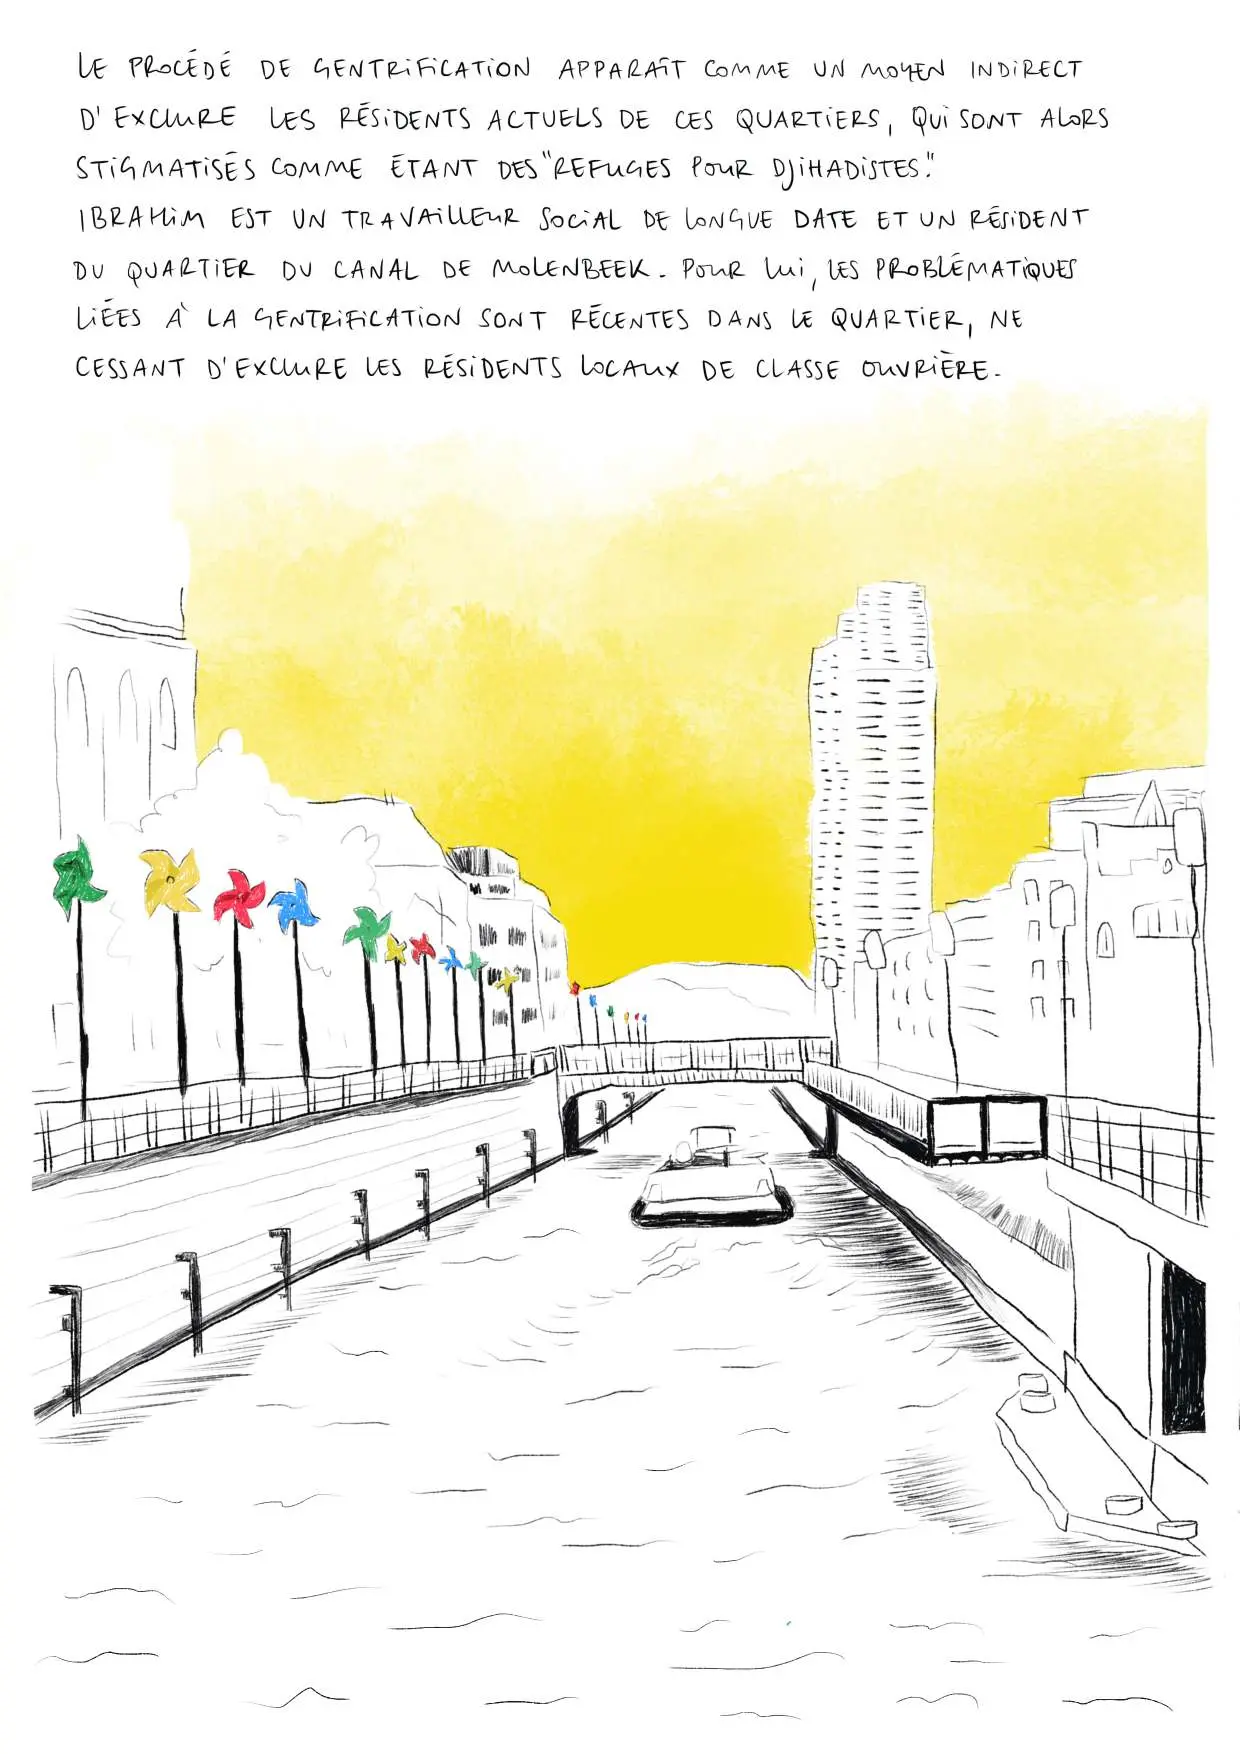 LE PROCÉDÉ DE GENTRIFICATION APPARAÎT COMME UN MOYEN INDIRECT
D'EXCLURE LES RÉSIDENTS ACTUELS DE CES QUARTIERS, QUI SONT ALORS
STIGMATISÉS COMME ÉTANT DES "REFUGES POUR DJIHADISTES".
IBRAHIM EST UN TRAVAILLEUR SOCIAL DE LONGUE DATE ET UN RÉSIDENT
DU QUARTIER DU CANAL DE MOLENBEEK. POUR LUI, LES PROBLÉMATIQUES
LIÉES À LA GENTRIFICATION SONT RÉCENTES DANS LE QUARTIER, NE
CESSANT D'EXCLURE LES RÉSIDENTS LOCAUX DE CLASSE OUVRIÈRE.